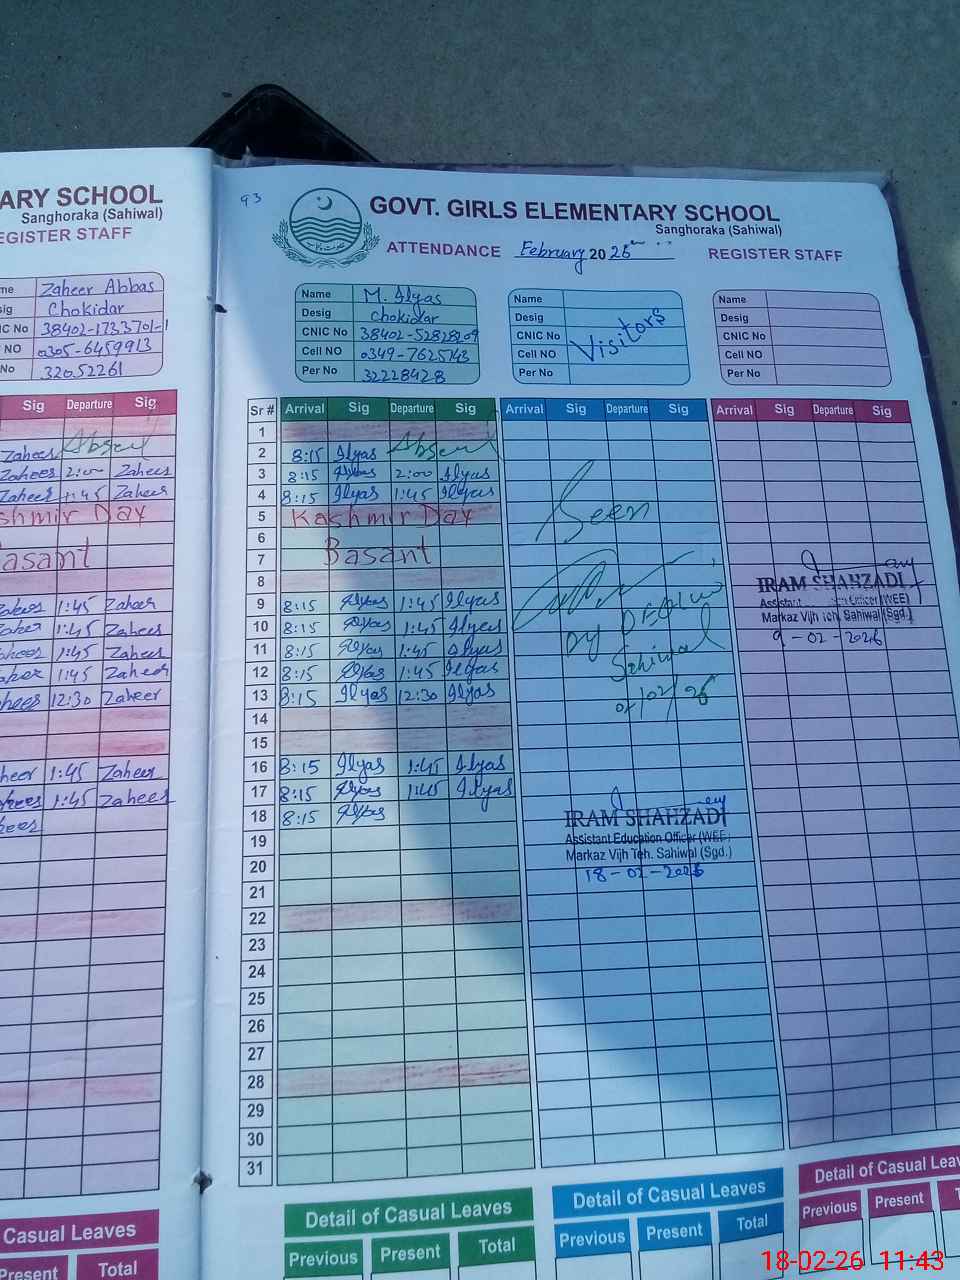 ARY SCHOOL
Sanghoraka (Sahiwal)
EGISTER STAFF
me Zaheer Abbas
sig Chokidar
IC No 38402-1733701-1
NO 0305-6459913
No 32052261
Sig Departure Sig
Zahees Absent
Zahees 2:00 Zahees
Zaheer 1:45 Zaheer
shmir Day
asant
1:45 Zaheer
1:45 Zahees
ahees 1:45 Zahees
aheer 1:45 Zaheer
hees 12:30 Zaheer
heer 1:45 Zaheer
ahees 1:45 Zahees
hees
Casual Leaves
Present Total
93
GOVT. GIRLS ELEMENTARY SCHOOL
Sanghoraka (Sahiwal)
ATTENDANCE February 2026 REGISTER STAFF
Name M. Ilyas
Desig Chokidar
CNIC No 38402-5282820-9
Cell NO 0349-7625143
Per No 32228428
Name
Desig
CNIC No
Cell NO
Per No
Visitors
Name
Desig
CNIC No
Cell NO
Per No
Sr # Arrival Sig Departure Sig Arrival Sig Departure Sig Arrival Sig Departure Sig
1
2 8:15 Ilyas Absent
3 8:15 Ilyas 2:00 Ilyas
4 8:15 Ilyas 1:45 Ilyas
5 Kashmir Day
6
7 Basant
8
9 8:15 Ilyas 1:45 Ilyas
10 8:15 Ilyas 1:45 Ilyas
11 8:15 Ilyas 1:45 Ilyas
12 8:15 Ilyas 1:45 Ilyas
13 8:15 Ilyas 12:30 Ilyas
14
15
16 8:15 Ilyas 1:45 Ilyas
17 8:15 Ilyas 1:45 Ilyas
18 8:15 Ilyas
19
20
21
22
23
24
25
26
27
28
29
30
31
Seen
Dy DEO
Sahiwal
IRAM SHAHZADI
Assistant Education Officer (WEE)
Markaz Vijh Teh. Sahiwal (Sgd.)
18-02-2026
IRAM SHAHZADI
Assistant Officer (WEE)
Markaz Vijh Teh. Sahiwal (Sgd.)
9-02-2026
Detail of Casual Leaves
Previous Present Total
Detail of Casual Leaves
Previous Present Total
Detail of Casual Leav
Previous Present T
18-02-26 11:43